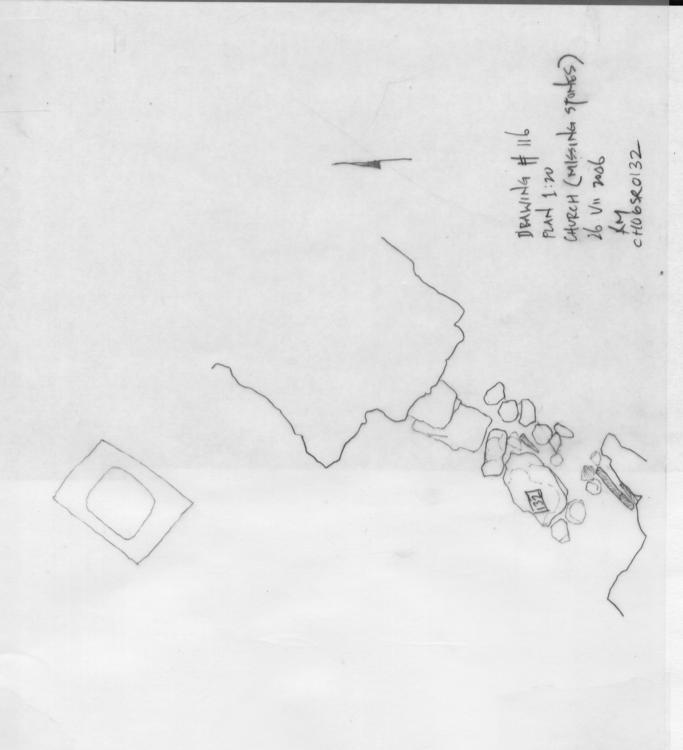 DRAWING # 116
PLAN 1:20
CHURCH (MISSING STONES)
26 VII 2006
KM
CH06SR0132
132